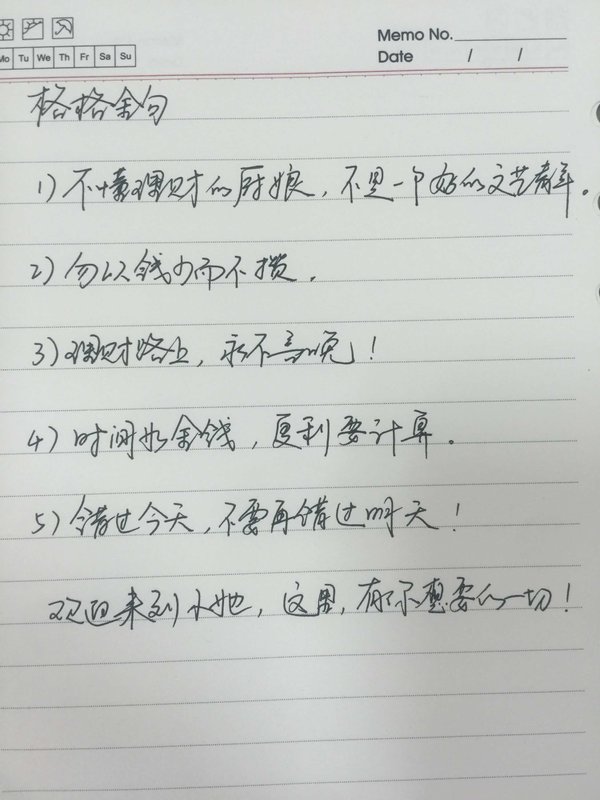 Memo No.
Mo Tu We Th Fr Sa Su
Date / /
格格金句
1) 不懂理财的厨娘，不是一个好的文艺青年。
2) 勿以钱少而不攒。
3) 理财路上，永不言晚！
4) 时间如金钱，复利要计算。
5) 错过今天，不要再错过明天！
欢迎来到小她，这里，有你想要的一切！